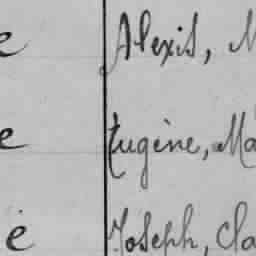 e Alexis, M
e Eugène, Ma
e Joseph, Cla